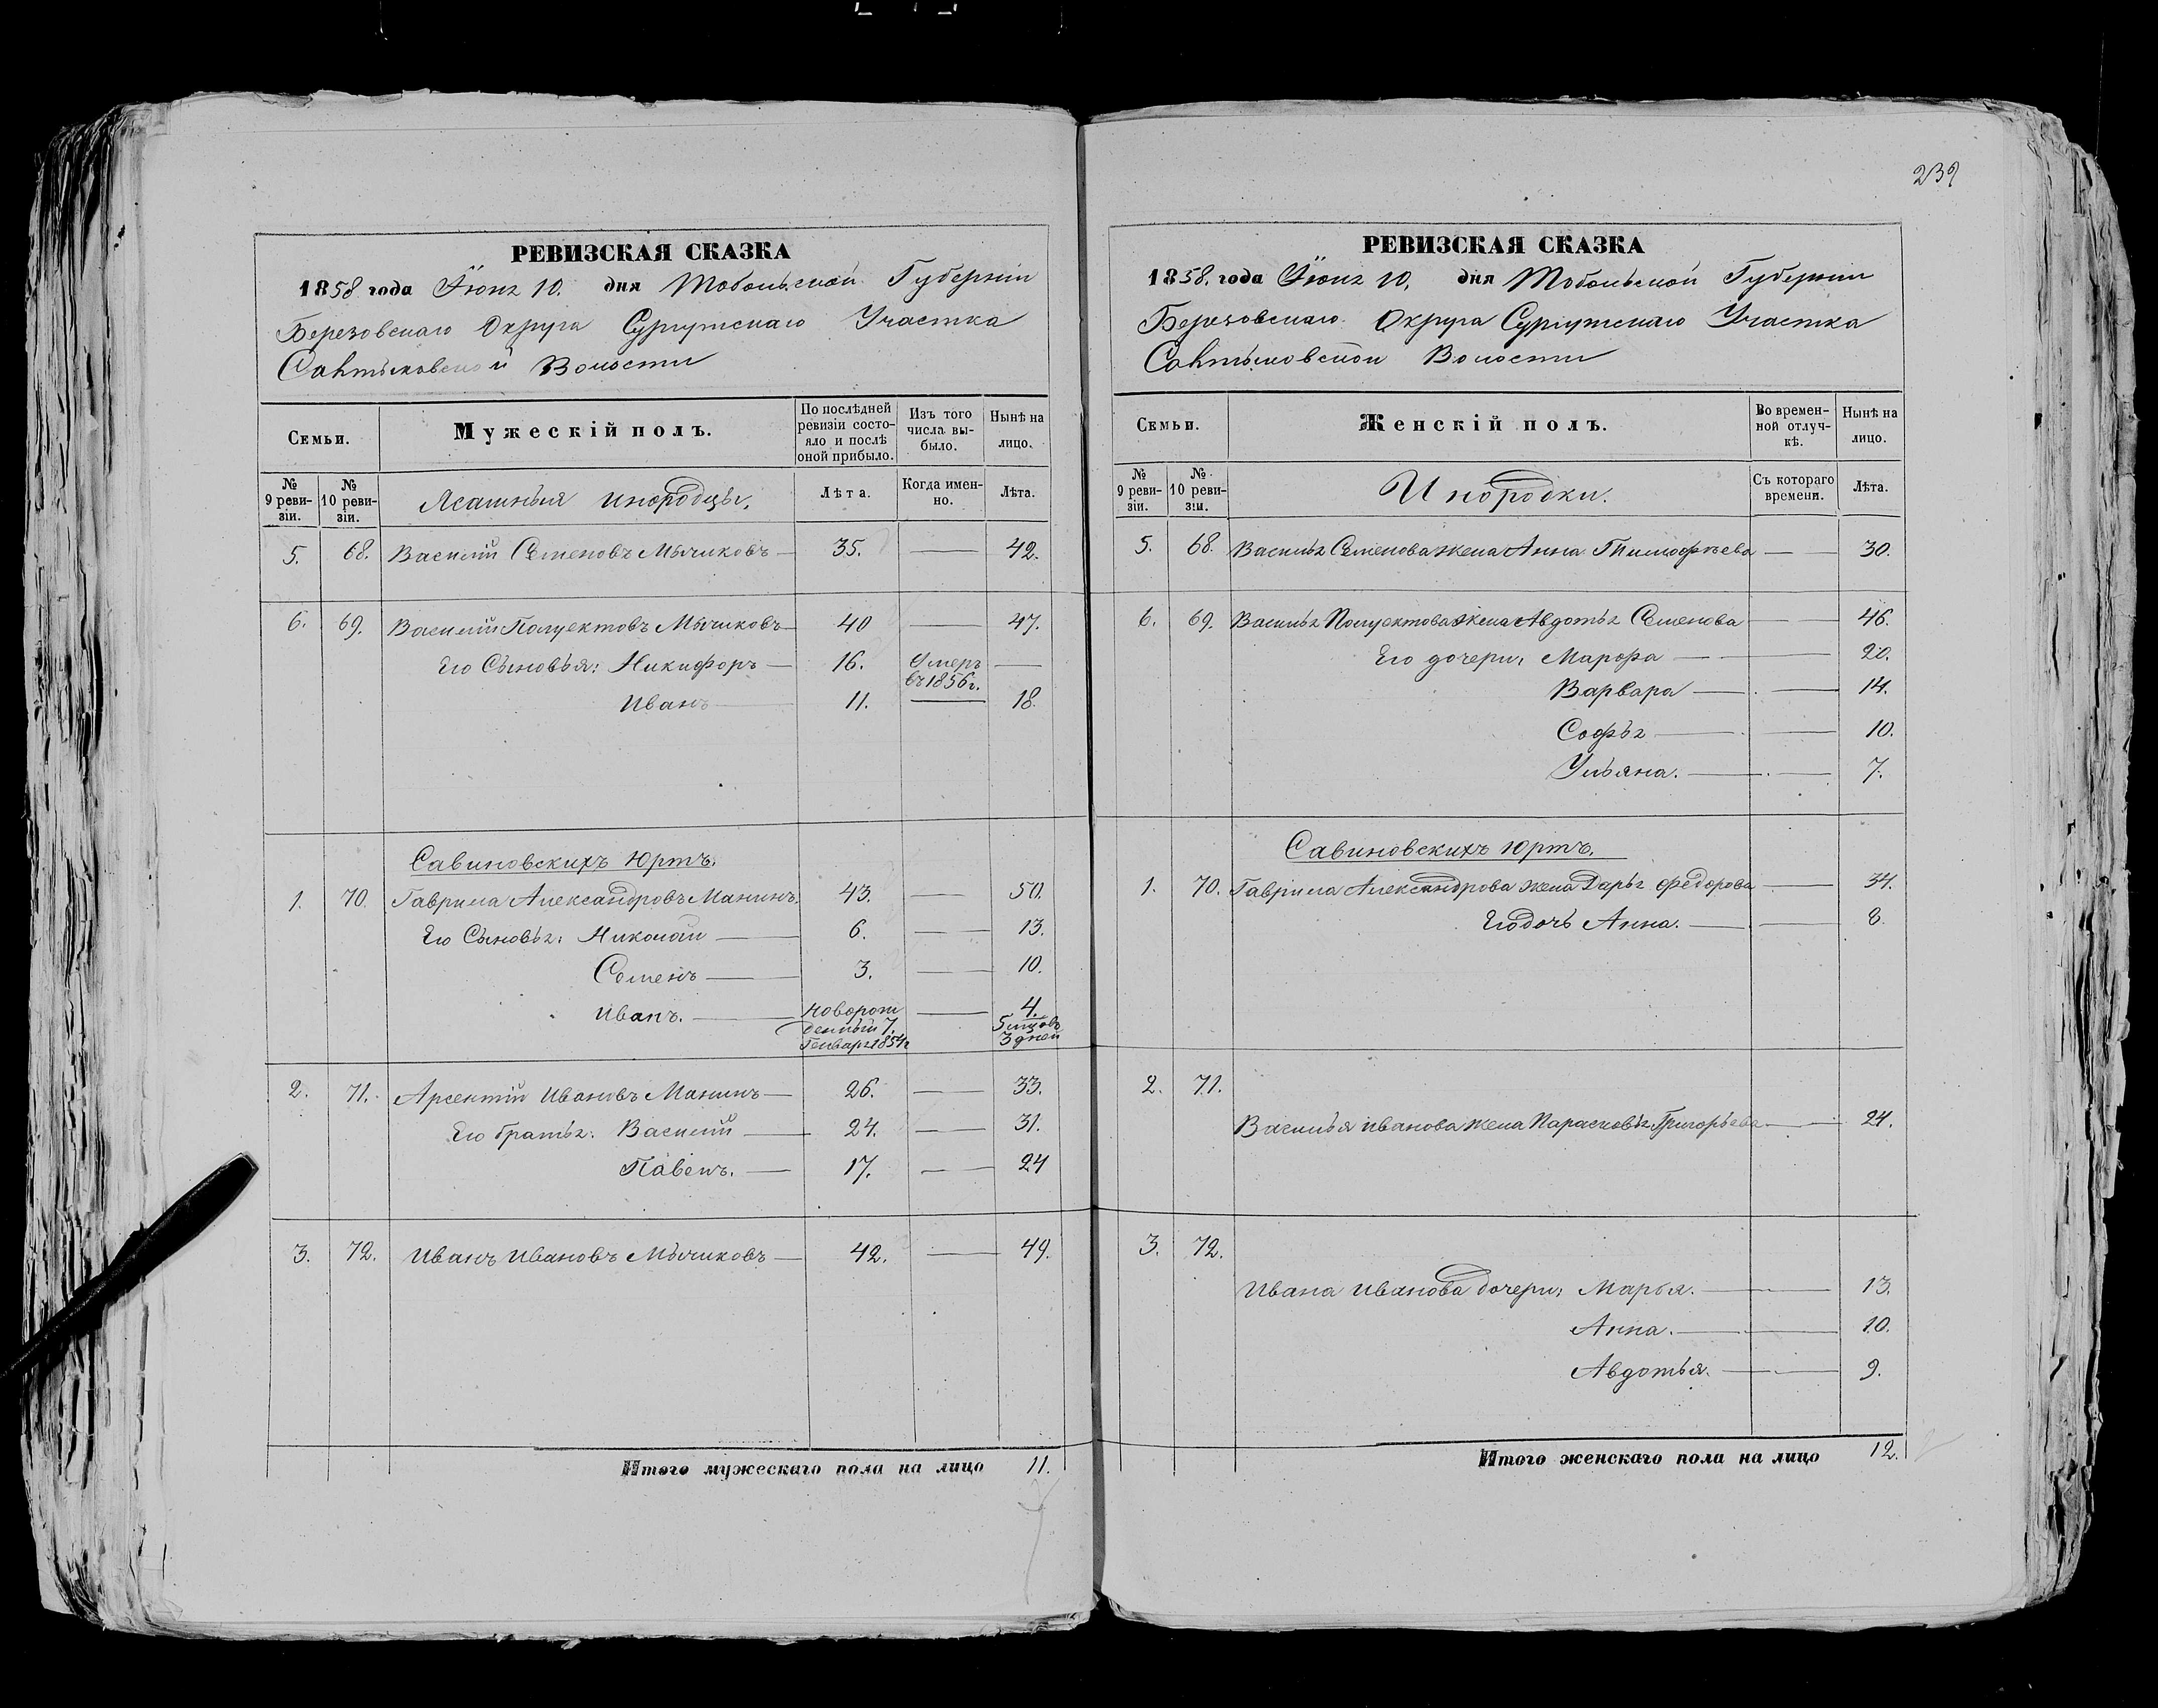 239
РЕВИЗСКАЯ СКАЗКА
1858 года Іюня 10. дня Тобольской Губерніи
Березовскаго Округа Сургутскаго Участка
Волости
Семьи.
Мужескій полъ.
По послѣдней ревизіи состояло и послѣ оной прибыло.
Изъ того числа выбыло.
Нынѣ на лицо.
№ 9 ревизіи.
№ 10 ревизіи.
Ясашныя инородцы.
Лѣта.
Когда именно.
Лѣта.
5. 68. Василій Семеновъ Мычиковъ — 35. — 42.
6. 69. Василій Полуектовъ Мычиковъ — 40 — 47.
Его Сыновья: Никифоръ — 16. Умеръ въ 1856 г. —
Иванъ — 11. — 18.
Савиновскихъ Юртъ.
1. 70. Гаврила Александровъ Манинъ. 43. — 50.
Его Сыновья: Николай — 6. — 13.
Семенъ — 3. — 10.
Иванъ. — новорожденный 7. Генваря 1854 г — 4. 5 мцовъ 3 дней
2. 71. Арсентій Ивановъ Манинъ — 26. — 33.
Его братья: Василій — 24. — 31.
Павелъ. — 17. — 24
3. 72. Иванъ Ивановъ Мычиковъ — 42. — 49.
Итого мужескаго пола на лицо 11.
РЕВИЗСКАЯ СКАЗКА
1858. года Іюня 10. дня Тобольской Губерніи
Березовскаго Округа Сургутскаго Участка
Волости
Семьи.
Женскій полъ.
Во временной отлучкѣ.
Нынѣ на лицо.
№ 9 ревизіи.
№ 10 ревизіи.
Инородки.
Съ котораго времени.
Лѣта.
5. 68. Василья Семенова жена Анна Тимофѣева — 30.
6. 69. Василья Полуектова жена Авдотья Семенова — 46.
Его дочери: Марфа — 20.
Варвара — 14.
Софья — 10.
Ульяна. — 7.
Савиновскихъ Юртъ.
1. 70. Гаврила Александрова жена Дарья Федорова — 34.
Его дочь Анна. — 8.
2. 71.
Василья Иванова жена Парасковья Григорьева — 24.
3. 72.
Ивана Иванова дочери: Марья. — 13.
Анна. — 10.
Авдотья. — 9.
Итого женскаго пола на лицо 12.